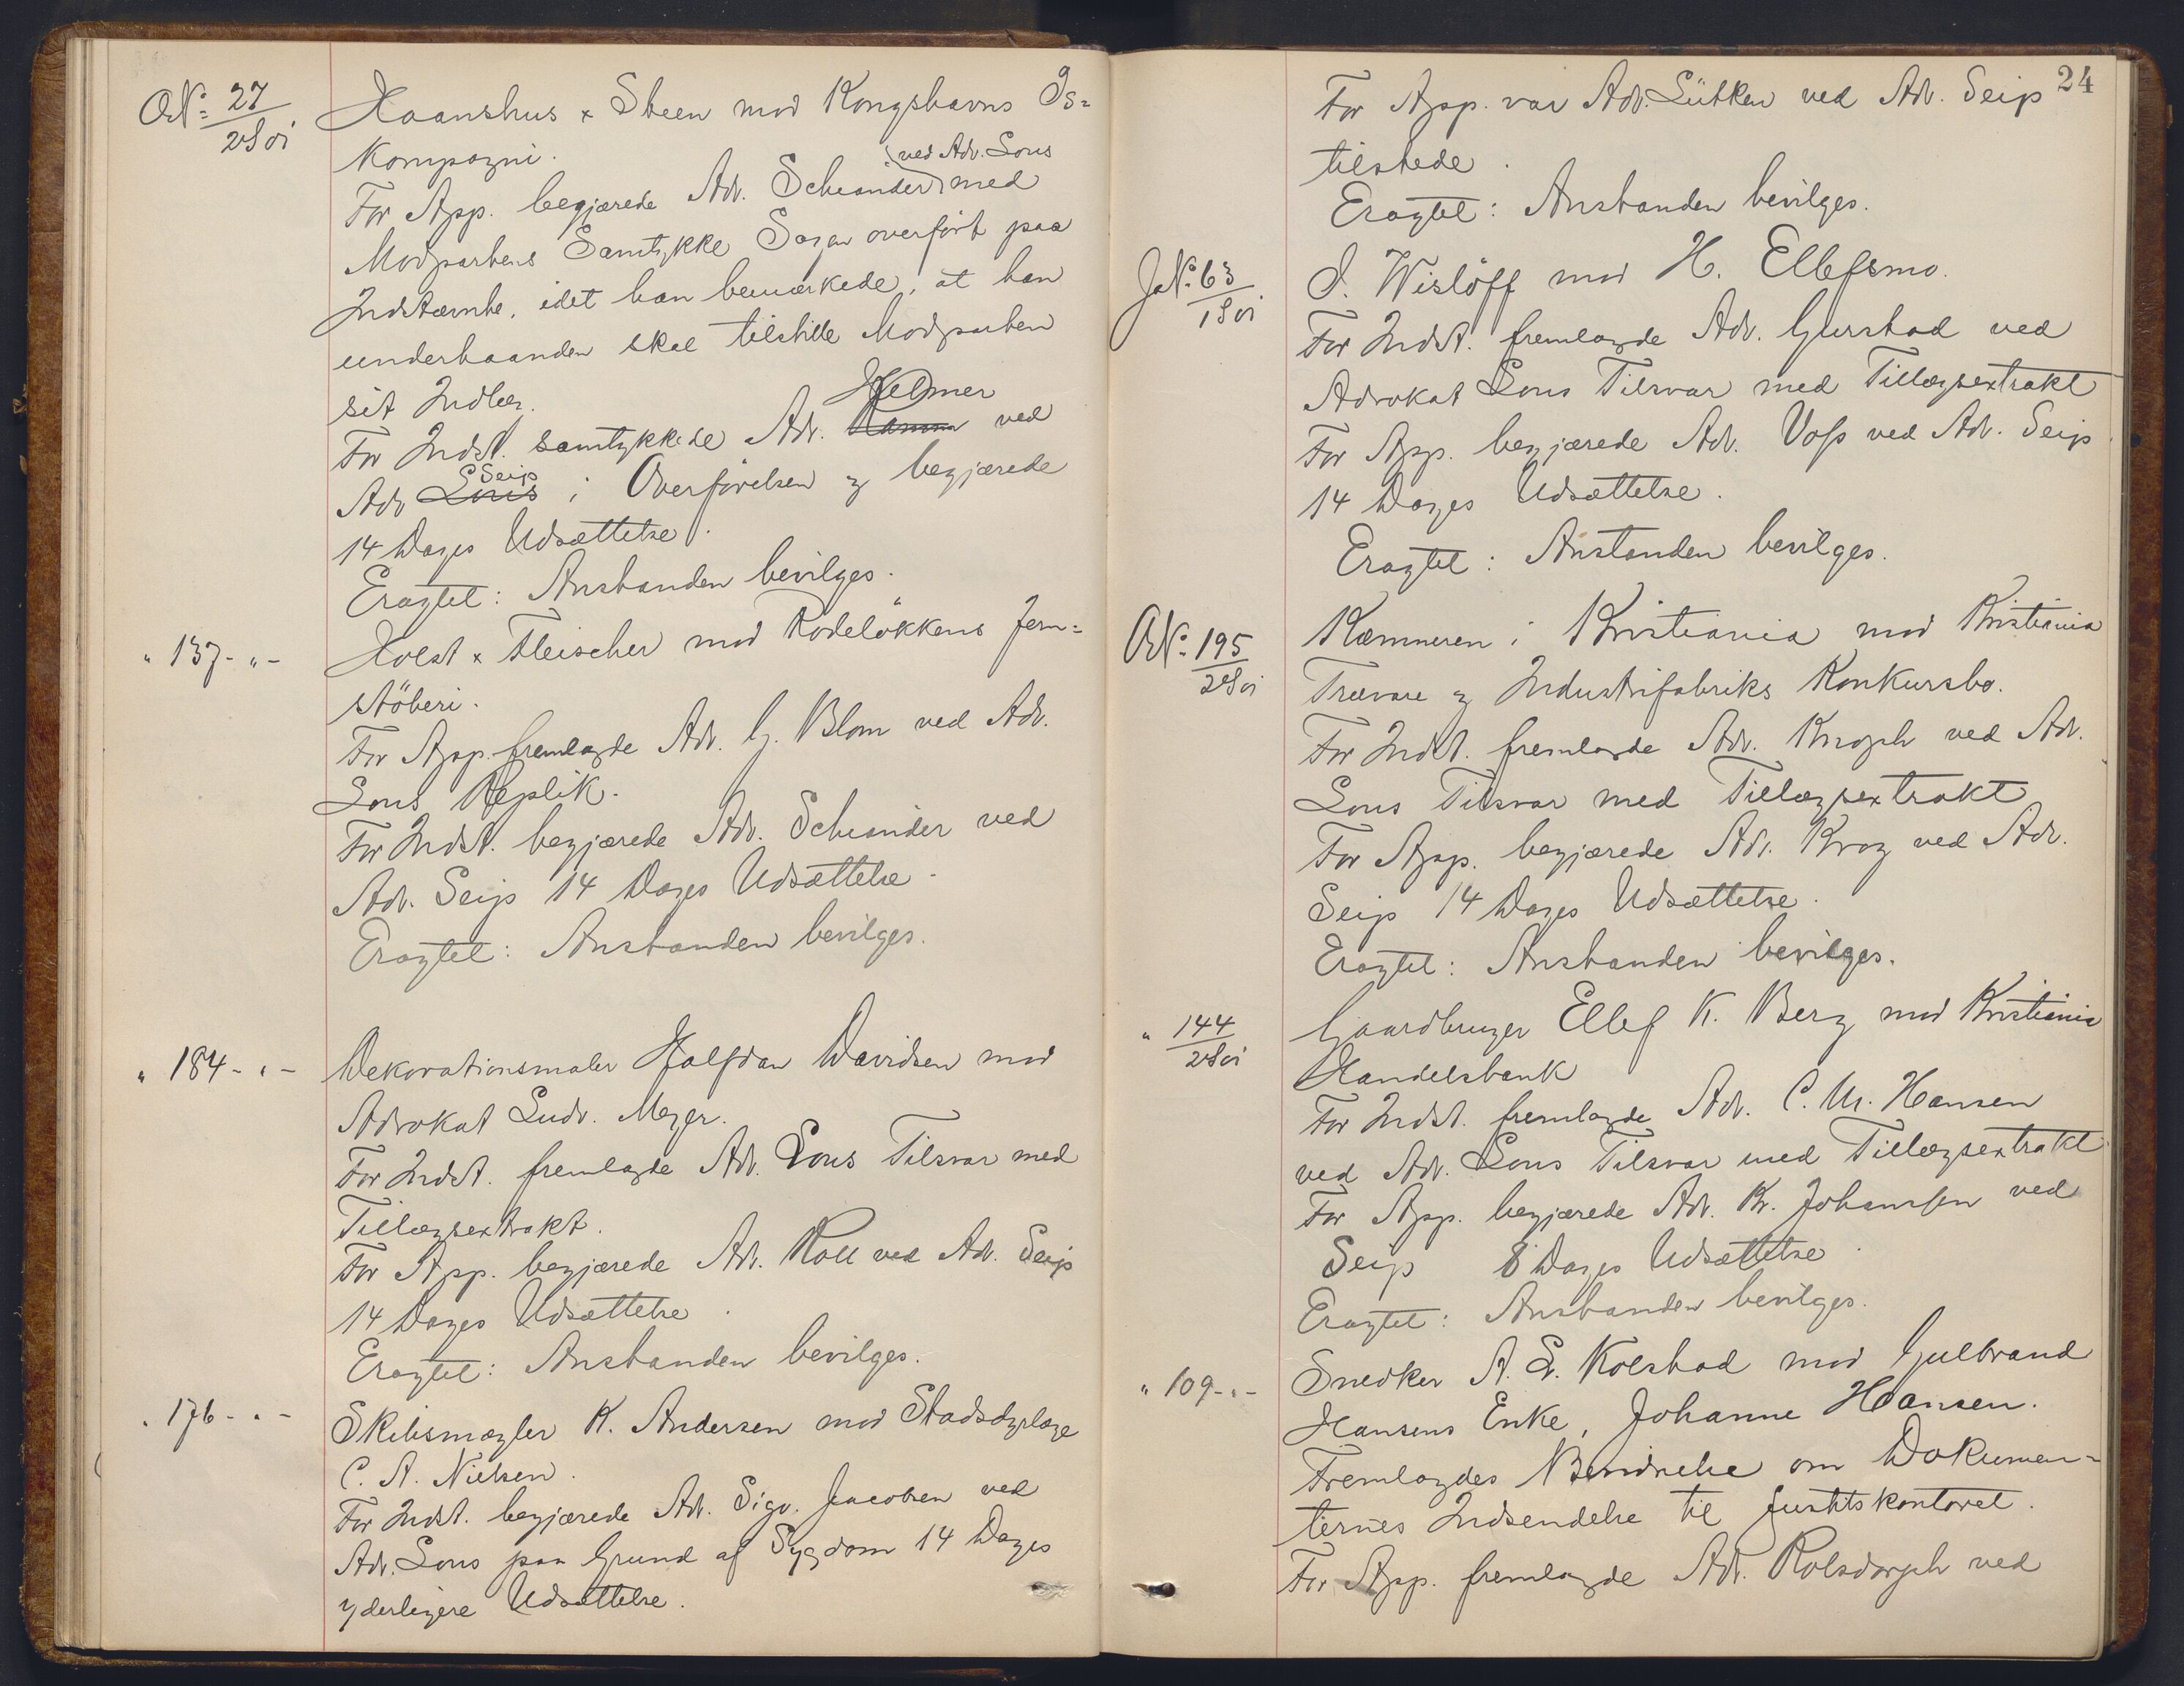 O.N: 27/2 S 01
Haanshus & Steen mod Kongshavns Is=
kompagni.
For App. begjærede Adv. Scheander (ved Adv. Lous) med
Modpartens Samtykke Sagen overført paa
Indstævnte, idet han bemærkede, at han
underhaanden skal tilstille Modparten
sit Indlæg.
For Indst. samtykkede Adv. Hamm Helmer ved
Adv Lous Seip i Overførelsen og begjærede
14 Dages Udsættelse.
Eragtet: Anstanden bevilges.
" 137 - " -
Holst & Fleischer mod Rodeløkkens Jern=
støberi.
For App. fremlagde Adv. G. Blom ved Adv.
Lous Replik.
For Indst. begjærede Adv. Scheander ved
Adv. Seip 14 Dages Udsættelse.
Eragtet: Anstanden bevilges.
" 184 - " -
Dekorationsmaler Halfdan Davidsen mod
Advokat Ludv. Meyer.
For Indst. fremlagde Adv. Lous Tilsvar med
Tillægsextrakt.
For App. begjærede Adv. Roll ved Adv. Seip
14 Dages Udsættelse.
Eragtet: Anstanden bevilges.
" 176 - " -
Skibsmægler K. Andersen mod Stadsdyrlæge
C. A. Nielsen.
For Indst. begjærede Adv. Sigv. Jacobsen ved
Adv. Lous paa Grund af Sygdom 14 Dages
yderligere Udsættelse.
24
For App. var Adv. Lütken ved Adv. Seip
tilstede.
Eragtet: Anstanden bevilges.
Ja N: 63/1 S 01
I. Wisløff mod H. Ellefsmo.
For Indst. fremlagde Adv. Gurstad ved
Advokat Lous Tilsvar med Tillægsextrakt
For App. begjærede Adv. Voss ved Adv. Seip
14 Dages Udsættelse.
Eragtet: Anstanden bevilges.
O.N: 195/2 S 01
Kæmneren i Kristiania mod Kristiania
Trævare og Industrifabriks Konkursbo.
For Indst. fremlagde Adv. Knoph ved Adv.
Lous Tilsvar med Tillægsextrakt
For App. begjærede Adv. Krog ved Adv.
Seip 14 Dages Udsættelse.
Eragtet: Anstanden bevilges.
" 144/2 S 01
Gaardbruger Ellef K. Berg mod Kristiania
Handelsbank
For Indst. fremlagde Adv. C. M. Hansen
ved Adv. Lous Tilsvar med Tillægsextrakt
For App. begjærede Adv. Kr. Johanssen ved
Seip 8 Dages Udsættelse.
Eragtet: Anstanden bevilges.
" 109 - " -
Snedker A. L. Kolstad mod Gulbrand
Hansens Enke, Johanne Hansen.
Fremlagdes Bevidnelse om Dokumen=
ternes Indsendelse til Justitskontoret.
For App. fremlagde Adv. Rolsdorph ved